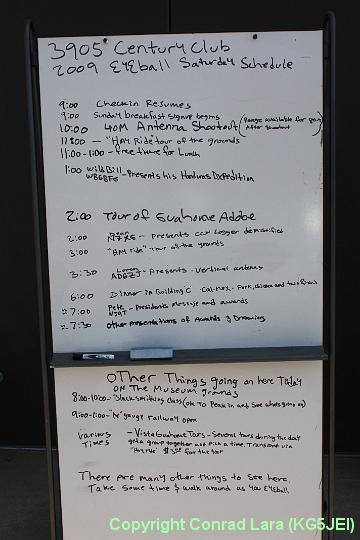 3905 Century Club
2009 EYEball Saturday Schedule
9:00 Checkin Resumes
9:00 Sunday breakfast signup begins
10:00 40M Antenna Shootout (Range available for
After Shootout
11:00 - "HAM Ride" tour of the grounds
11:00-1:00 - free time for Lunch
1:00 Wild Bill
- Presents his Honduras DXpedition
2:00 Tour of Guahome Adobe
2:00 N7XG - Presents CCN Logger demistified
3:00 "HAM ride" Tour of the grounds
3:30 Loren
AD6ZJ - Presents - Vertical antennas
6:00 Dinner in Building C - Cal-Mex - Pork, chicken and
≈ 7:00 Pete - Presidents Message and awards
≈ 7:30 Other presentations of Awards & Drawing
OTher Things going on here Today
ON The Museum grounds
8:00-10:00 - Blacksmithing Class (OK To Peak in and See whats going on)
9:00-1:00 - "N" gauge railway open
Various
Times - Vista Guahome Tours - Several tours during the day
get a group together and pick a time. Transport via
"Hayride" for the tour
There are many other things to See here.
Take some time & walk around as you EYEball
Copyright Conrad Lara (KG5JEI)